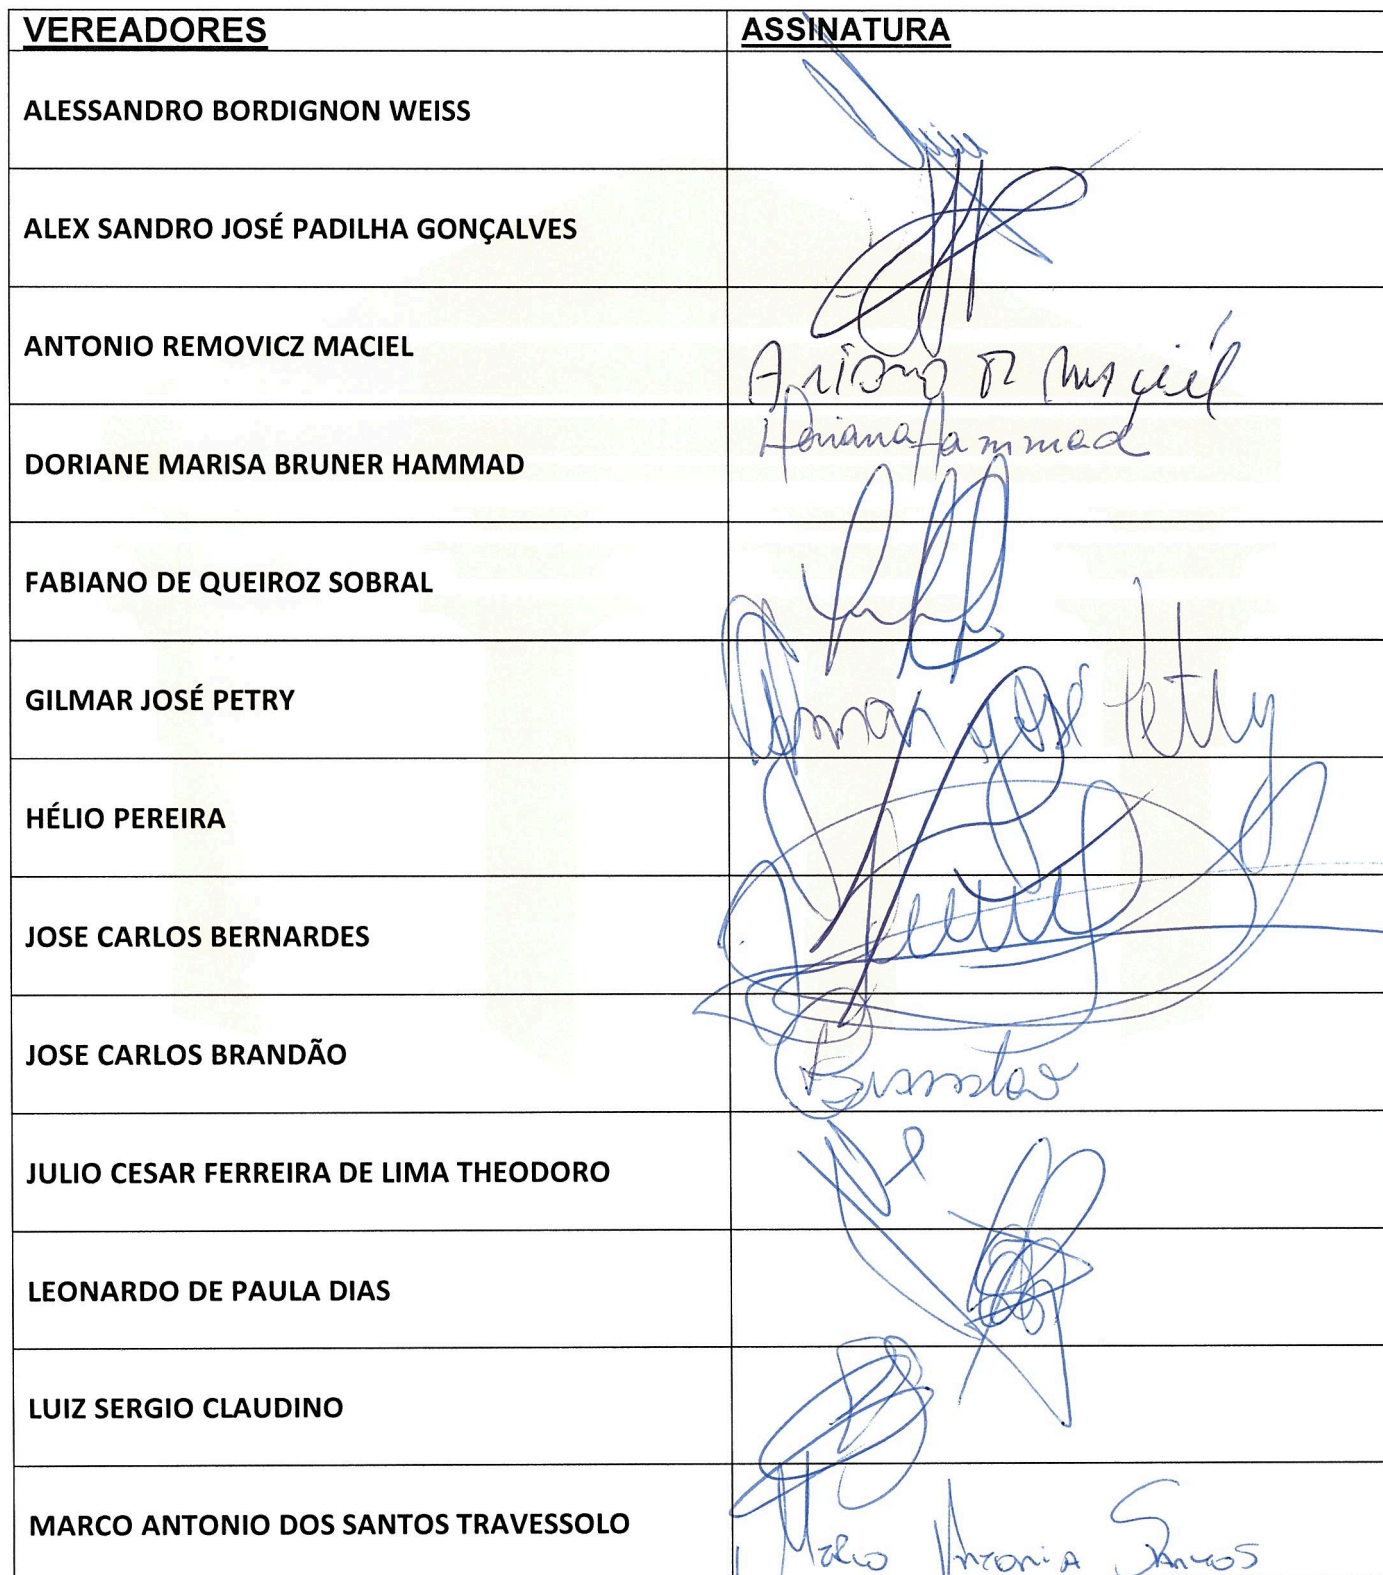 VEREADORES ASSINATURA
ALESSANDRO BORDIGNON WEISS
ALEX SANDRO JOSÉ PADILHA GONÇALVES
ANTONIO REMOVICZ MACIEL Antonio R Maciel
DORIANE MARISA BRUNER HAMMAD Doriane Hammad
FABIANO DE QUEIROZ SOBRAL
GILMAR JOSÉ PETRY Gilmar José Petry
HÉLIO PEREIRA
JOSE CARLOS BERNARDES
JOSE CARLOS BRANDÃO
JULIO CESAR FERREIRA DE LIMA THEODORO
LEONARDO DE PAULA DIAS
LUIZ SERGIO CLAUDINO
MARCO ANTONIO DOS SANTOS TRAVESSOLO Marco Antonio Santos